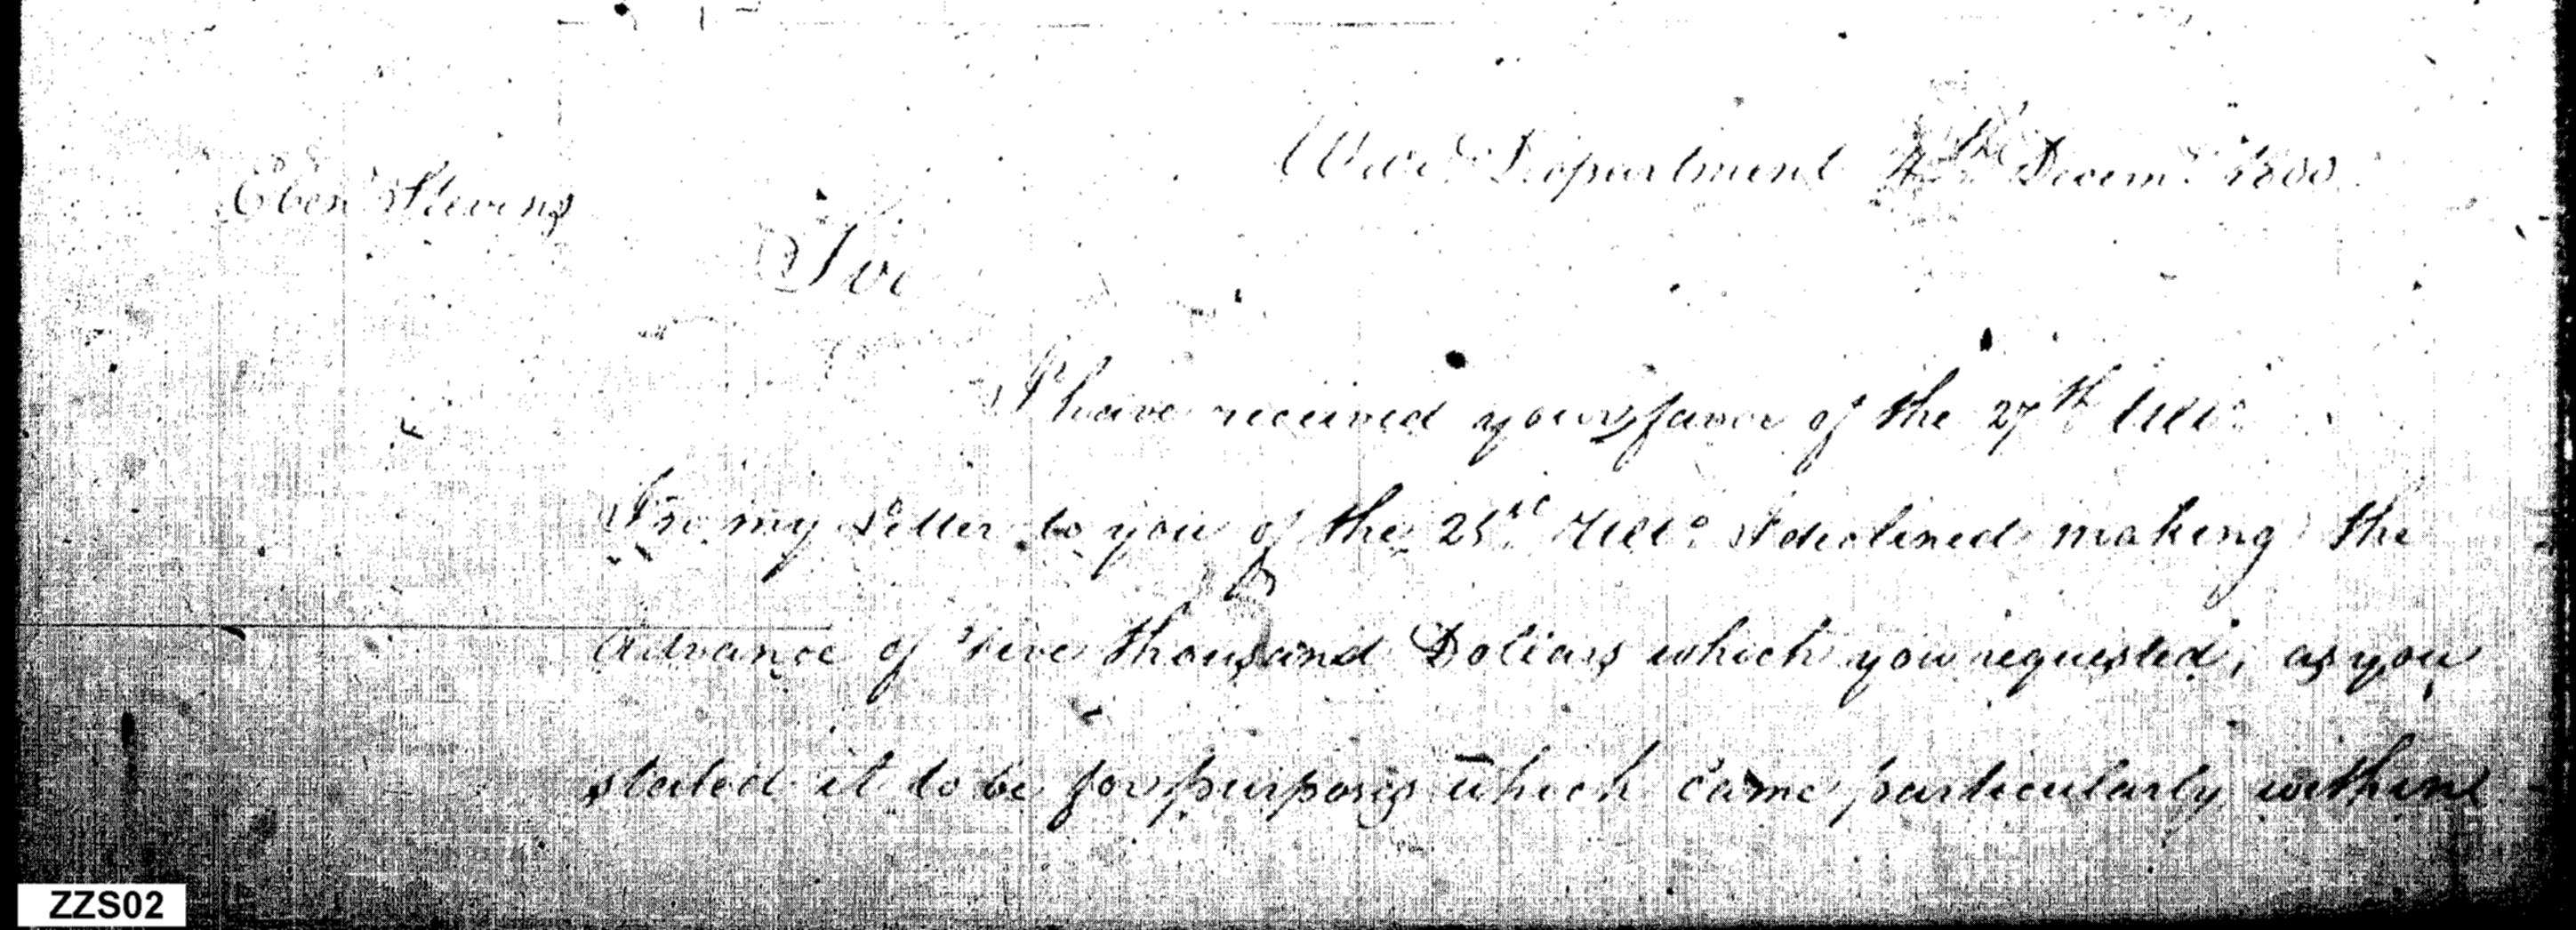 War Department 4th Decemr. 1800
Ebenr Stevens
Sir
I have received your favor of the 27th Ulto.
In my Letter to you of the 21st Ulto. I declined making the
Advance of five thousand Dollars which you requested, as you
stated it to be for purposes which came particularly within
ZZS02